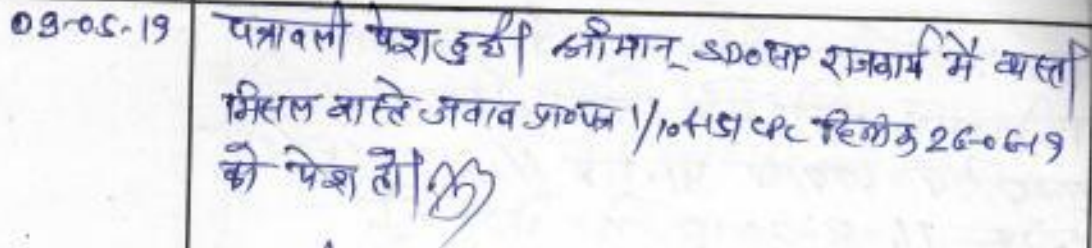 09-05-19 पत्रावली पेश हुई। श्रीमान् SDO साo राजकार्य में व्यस्त।
मिसल वास्ते जवाब प्राoपत्र 1/10 CPC दिनांक 26-06-19
को पेश हो।